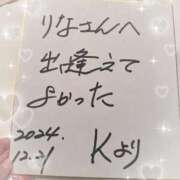 りなさんへ
出逢えて
よかった
2024.
12.21
Kより